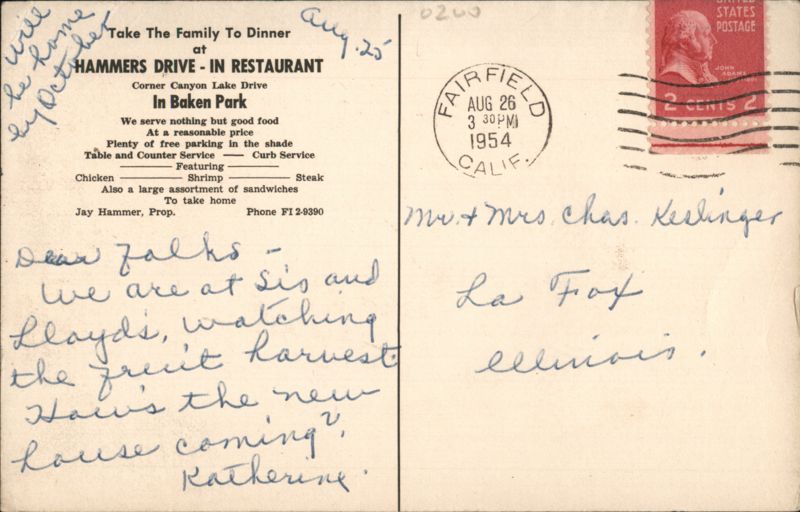 will
be home
by October
Aug. 25
Take The Family To Dinner
at
HAMMERS DRIVE - IN RESTAURANT
Corner Canyon Lake Drive
In Baken Park
We serve nothing but good food
At a reasonable price
Plenty of free parking in the shade
Table and Counter Service — Curb Service
Featuring
Chicken — Shrimp — Steak
Also a large assortment of sandwiches
To take home
Jay Hammer, Prop. Phone FI 2-9390
Dear Folks -
We are at Sis and
Lloyds, watching
the fruit harvest
How's the new
house coming?
Katherine.
FAIRFIELD
AUG 26
3 30 PM
1954
CALIF.
UNITED
STATES
POSTAGE
JOHN
ADAMS
2 CENTS 2
Mr. + Mrs. Chas. Keslinger
La Fox
Illinois.